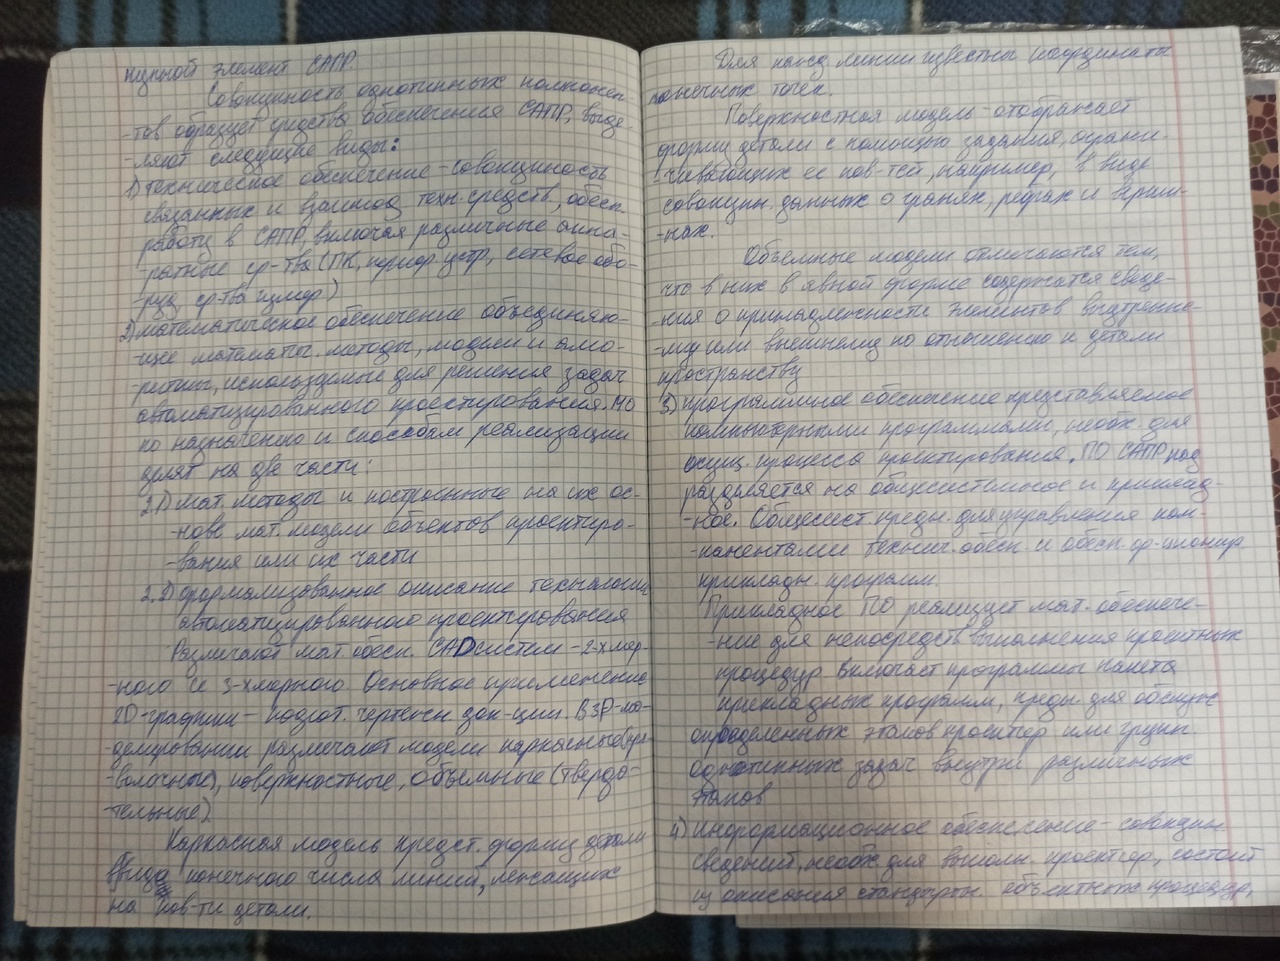 нупный элемент САПР.
Совокупность однотипных компонен-
-тов образует средства обеспечения САПР, выде-
-ляют следующие виды:
1) техническое обеспечение - совокупность
связанных и взаимод техн. средств, обесп.
работу в САПР, включая различные аппа-
-ратные ср-тва (ПК, периф. устр, сетевое обо-
-руд ср-тва измер)
2) математическое обеспечение объединяю-
-щее математич. методы, модели и алго-
-ритмы, используемые для решения задач
автоматизированного проектирования. МО
по назначению и способам реализации
делят на две части:
2.1) мат. методы и построенные на их ос-
-нове мат. модели объектов проектиро-
-вания или их части
2.2) формализованное описание технологии
автоматизированного проектирования
Различают мат. обесп. CAD систем - 2-хмер-
-ного и 3-хмерного Основное применение
2D-графики - подгот. чертежн док-ции. В 3D-мо-
-делировании различают модели каркасные (про-
-волочные), поверхностные, объемные (твердо-
-тельные)
Каркасная модель предст. форму детали
в виде конечного числа линий, лежащих
на пов-ти детали.
Для кажд линии известны координаты
конечных точек.
Поверхностная модель отображает
форму детали с помощью задания, ограни-
-чивающих ее пов-тей, например, в виде
совокупн. данных о гранях, ребрах и верши-
-нах.
Объемные модели отличаются тем,
что в них в явной форме содержатся сведе-
-ния о принадлежности элементов внутренне-
-му или внешнему по отношению к детали
пространству
3) программное обеспечение представляемое
компьютерными программами, необх. для
осущ. процесса проектирования. ПО САПР под
разделяется на общесистемное и приклад-
-ное. Общесист предн. для управления ком-
-понентами технич. обесп. и обесп. ф-ционир
прикладн. программ.
Прикладное ПО реализует мат. обеспече-
-ние для непосредств выполнения проектных
процедур Включает программы пакета
прикладных программ, предн. для обслуж
определенных этапов проектир или групп.
однотипных задач внутри различных
этапов
4) информационное обеспечение - совокупн.
сведений, необх для выполн. проектир, состоит
из описания стандартн. процедур,